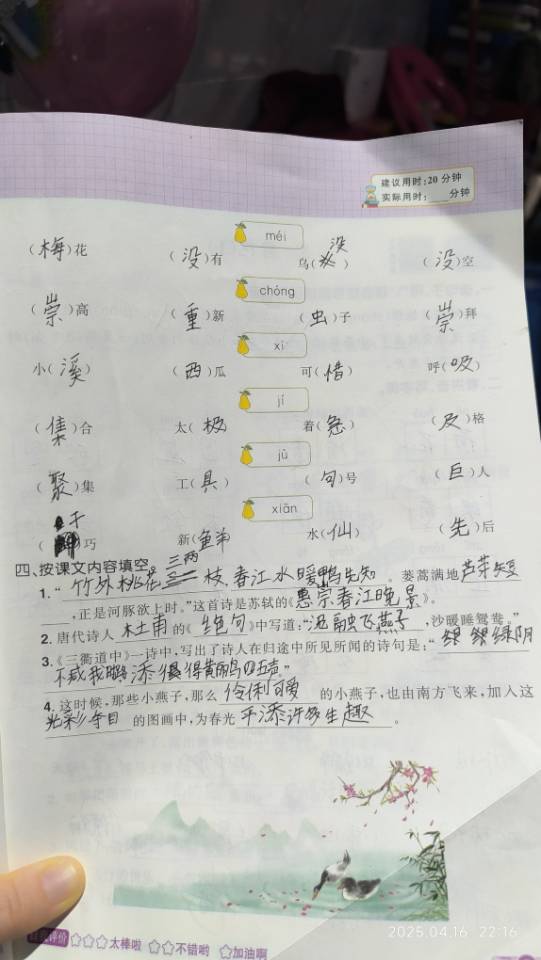 建议用时：20 分钟
实际用时：____分钟
méi
（梅）花 （没）有 乌（没） （没）空
chóng
（崇）高 （重）新 （虫）子 （崇）拜
xī
小（溪） （西）瓜 可（惜） 呼（吸）
jí
（集）合 太（极） 着（急） （及）格
jù
（聚）集 工（具） （句）号 （巨）人
xiān
（干）巧 新（鲜） 水（仙） （先）后
四、按课文内容填空。
1.“竹外桃花三两枝，春江水暖鸭先知。蒌蒿满地芦芽短
，正是河豚欲上时。”这首诗是苏轼的《惠宗春江晚景》。
2. 唐代诗人杜甫的《绝句》中写道：“泥融飞燕子，沙暖睡鸳鸯。”
3.《三衢道中》一诗中，写出了诗人在归途中所见所闻的诗句是：“绿阴
不减 添得黄鹂四五声。”
4. 这时候，那些小燕子，那么伶俐可爱的小燕子，也由南方飞来，加入这
光彩夺目的图画中，为春光平添许多生趣。
评价 ☆☆☆太棒啦 ☆☆不错哟 ☆加油啊
2025.04.16 22:16